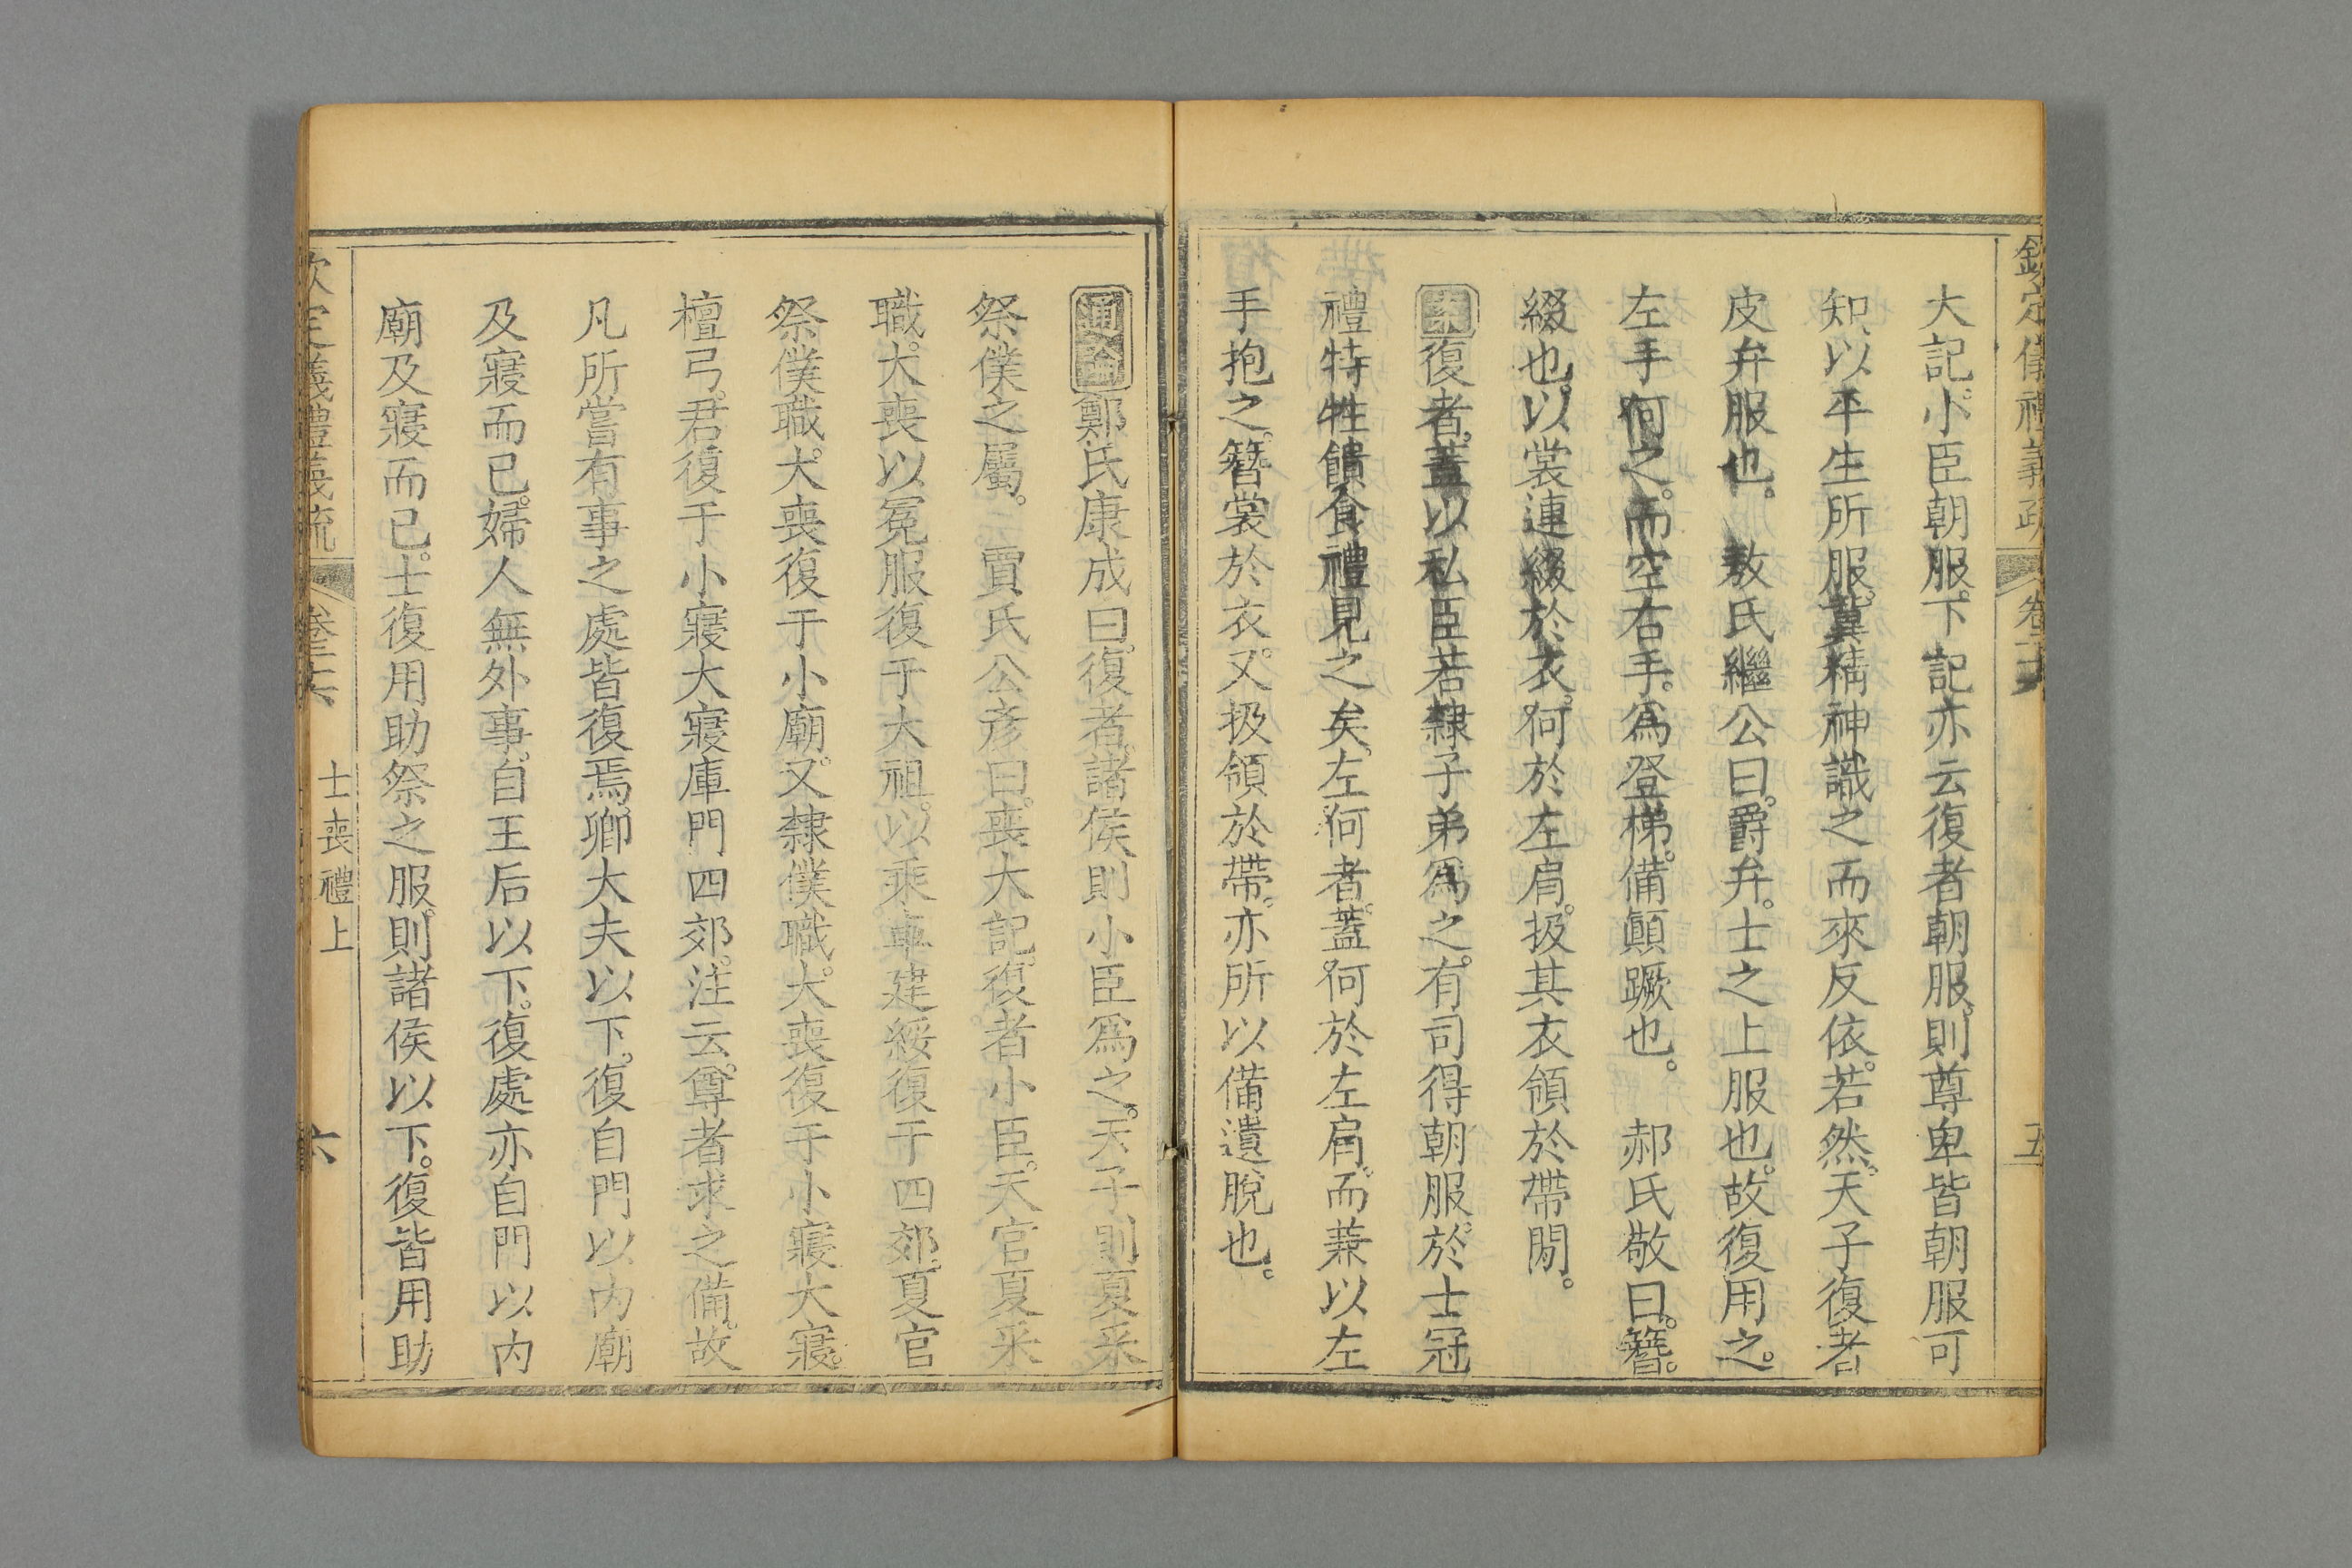 大記小臣朝服下記亦云復者朝服則尊卑皆朝服可
知以平生所服冀精神識之而來反依若然天子復者
皮弁服也。 敖氏繼公曰爵弁士之上服也故復用之。
左手何之而空右手爲登梯備顛蹶也。 郝氏敬曰簪。
綴也以裳連綴於衣何於左肩扱其衣領於帶閒。
案復者蓋以私臣若隸子弟爲之有司得朝服於士冠
禮特牲饋食禮見之矣左何者蓋何於左肩而兼以左
手抱之簪裳於衣又扱領於帶亦所以備遺脫也。
通論鄭氏康成曰復者諸侯則小臣爲之天子則夏采
祭僕之屬。 賈氏公彦曰喪大記復者小臣天官夏采
職大喪以冕服復于大祖以乘車建綏復于四郊夏官
祭僕職大喪復于小廟又隸僕職大喪復于小寢大寢。
檀弓君復于小寢大寢庫門四郊注云尊者求之備故
凡所嘗有事之處皆復焉卿大夫以下復自門以內廟
及寢而已婦人無外事自王后以下復處亦自門以內
廟及寢而已士復用助祭之服則諸侯以下復皆用助
士喪禮上
六